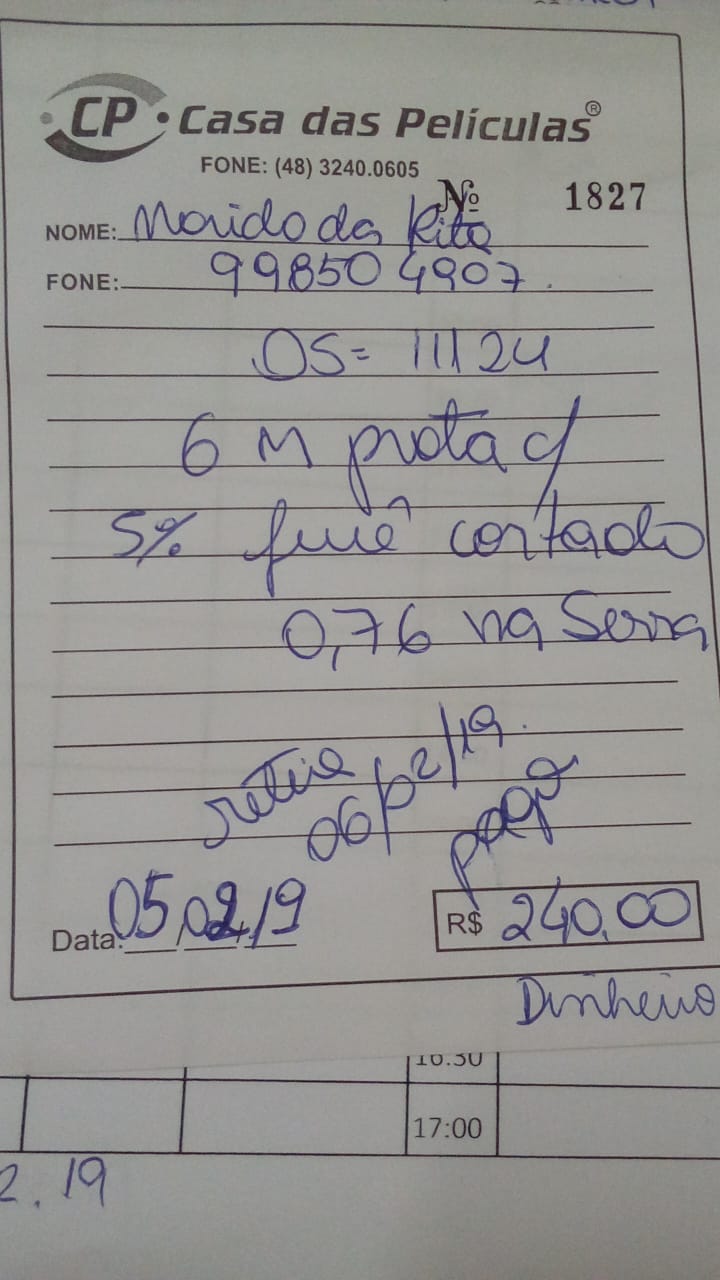 CP · Casa das Películas®
FONE: (48) 3240.0605
Nº 1827
NOME: Marido da Rita
FONE: 99850 4907.
OS= 11124
6 M preta c/
5% fumê cortado
0,76 na Serra
retira
06/02/19.
pago
Data: 05/02/19
R$ 240,00
Dinheiro
16:30
17:00
2.19